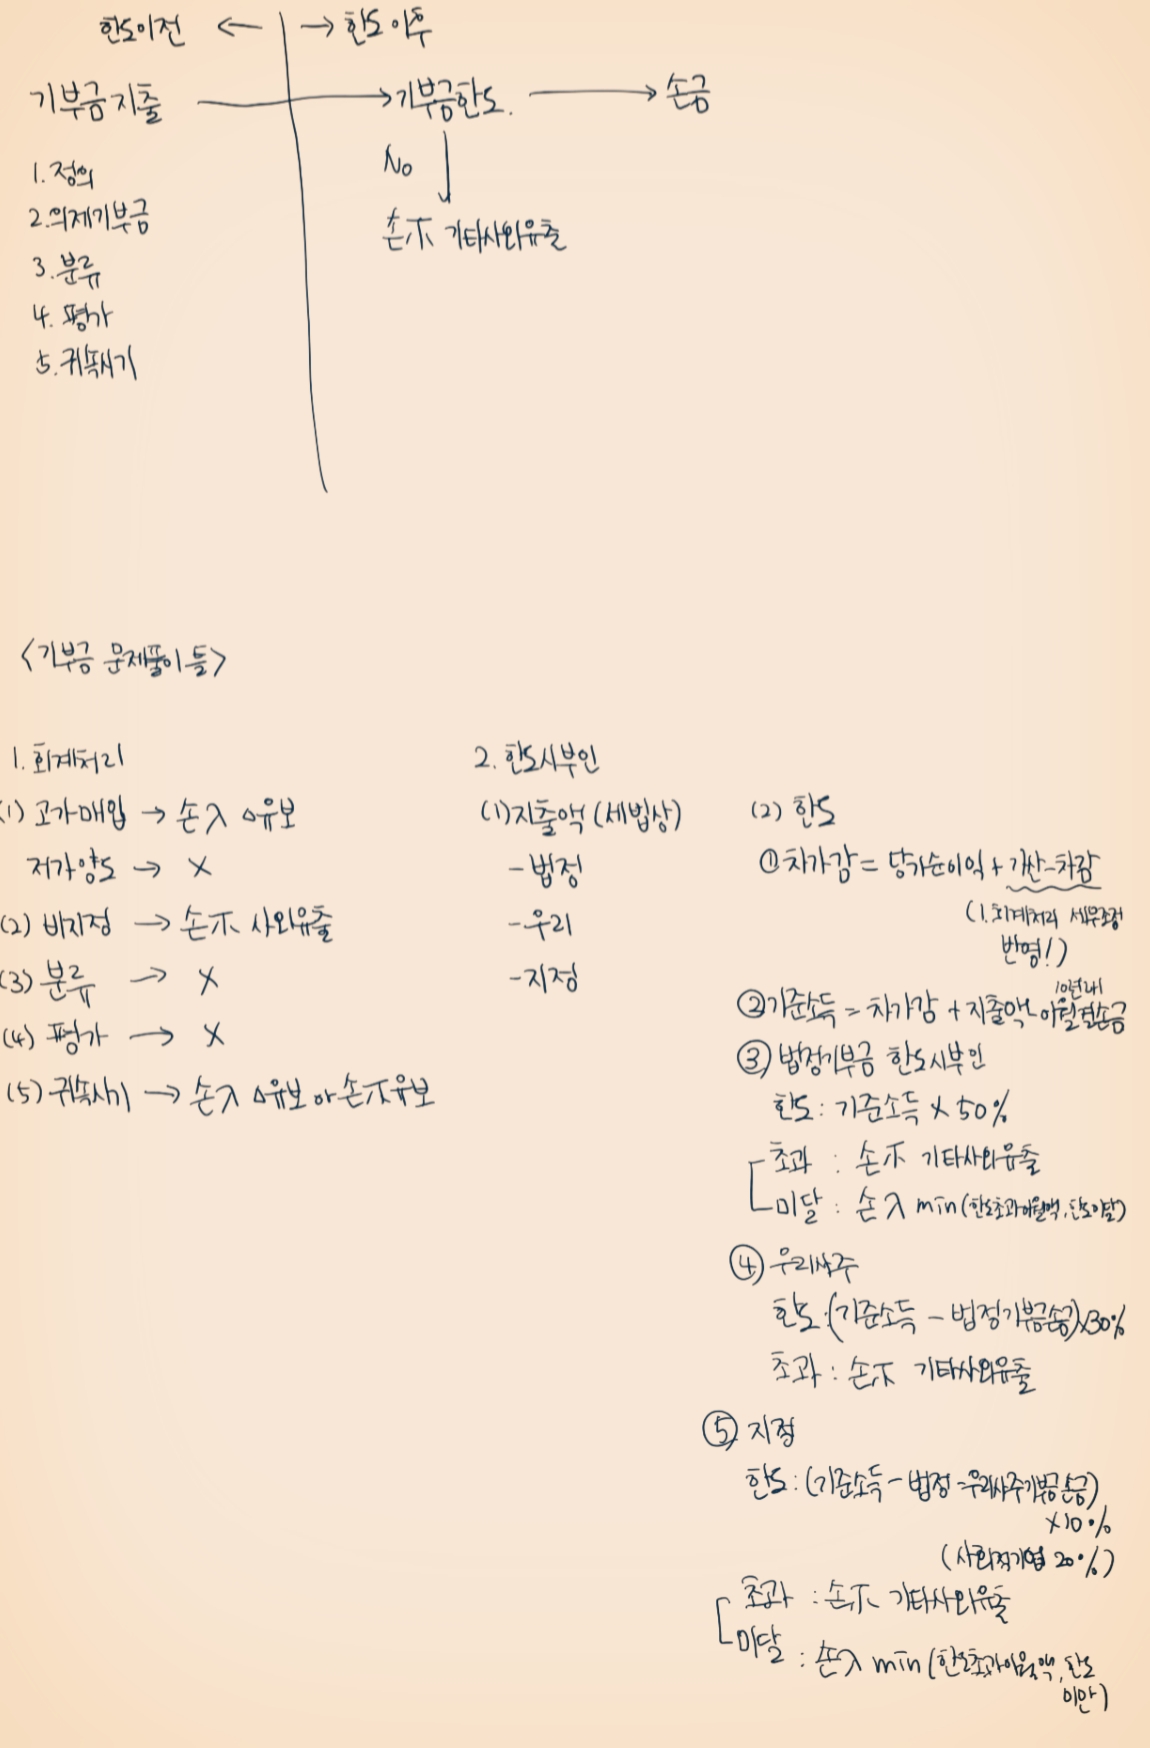 한도이전 ← → 한도이후
기부금지출 → 기부금한도. → 손금
No
손不 기타사외유출
1. 정의
2. 의제기부금
3. 분류
4. 평가
5. 귀속시기
<기부금 문제풀이 틀>
1. 회계처리
(1) 고가매입 → 손入 △유보
저가양도 → X
(2) 비지정 → 손不 사외유출
(3) 분류 → X
(4) 평가 → X
(5) 귀속시기 → 손入 △유보 or 손不유보
2. 한도시부인
(1) 지출액 (세법상)
- 법정
- 우리
- 지정
(2) 한도
① 차가감 = 당기순이익 + 가산-차감
(1. 회계처리 세무조정
반영!)
10년내
② 기준소득 = 차가감 + 지출액 - 이월결손금
③ 법정기부금 한도시부인
한도 : 기준소득 X 50%
초과 : 손不 기타사외유출
미달 : 손入 min (한도초과이월액, 한도미달)
④ 우리사주
한도 : (기준소득 - 법정기부금손금)x30%
초과 : 손不 기타사외유출
⑤ 지정
한도 : (기준소득 - 법정 - 우리사주기부금손금)
X10%
(사회적기업 20%)
초과 : 손不 기타사외유출
미달 : 손入 min (한도초과이월액, 한도
미만)